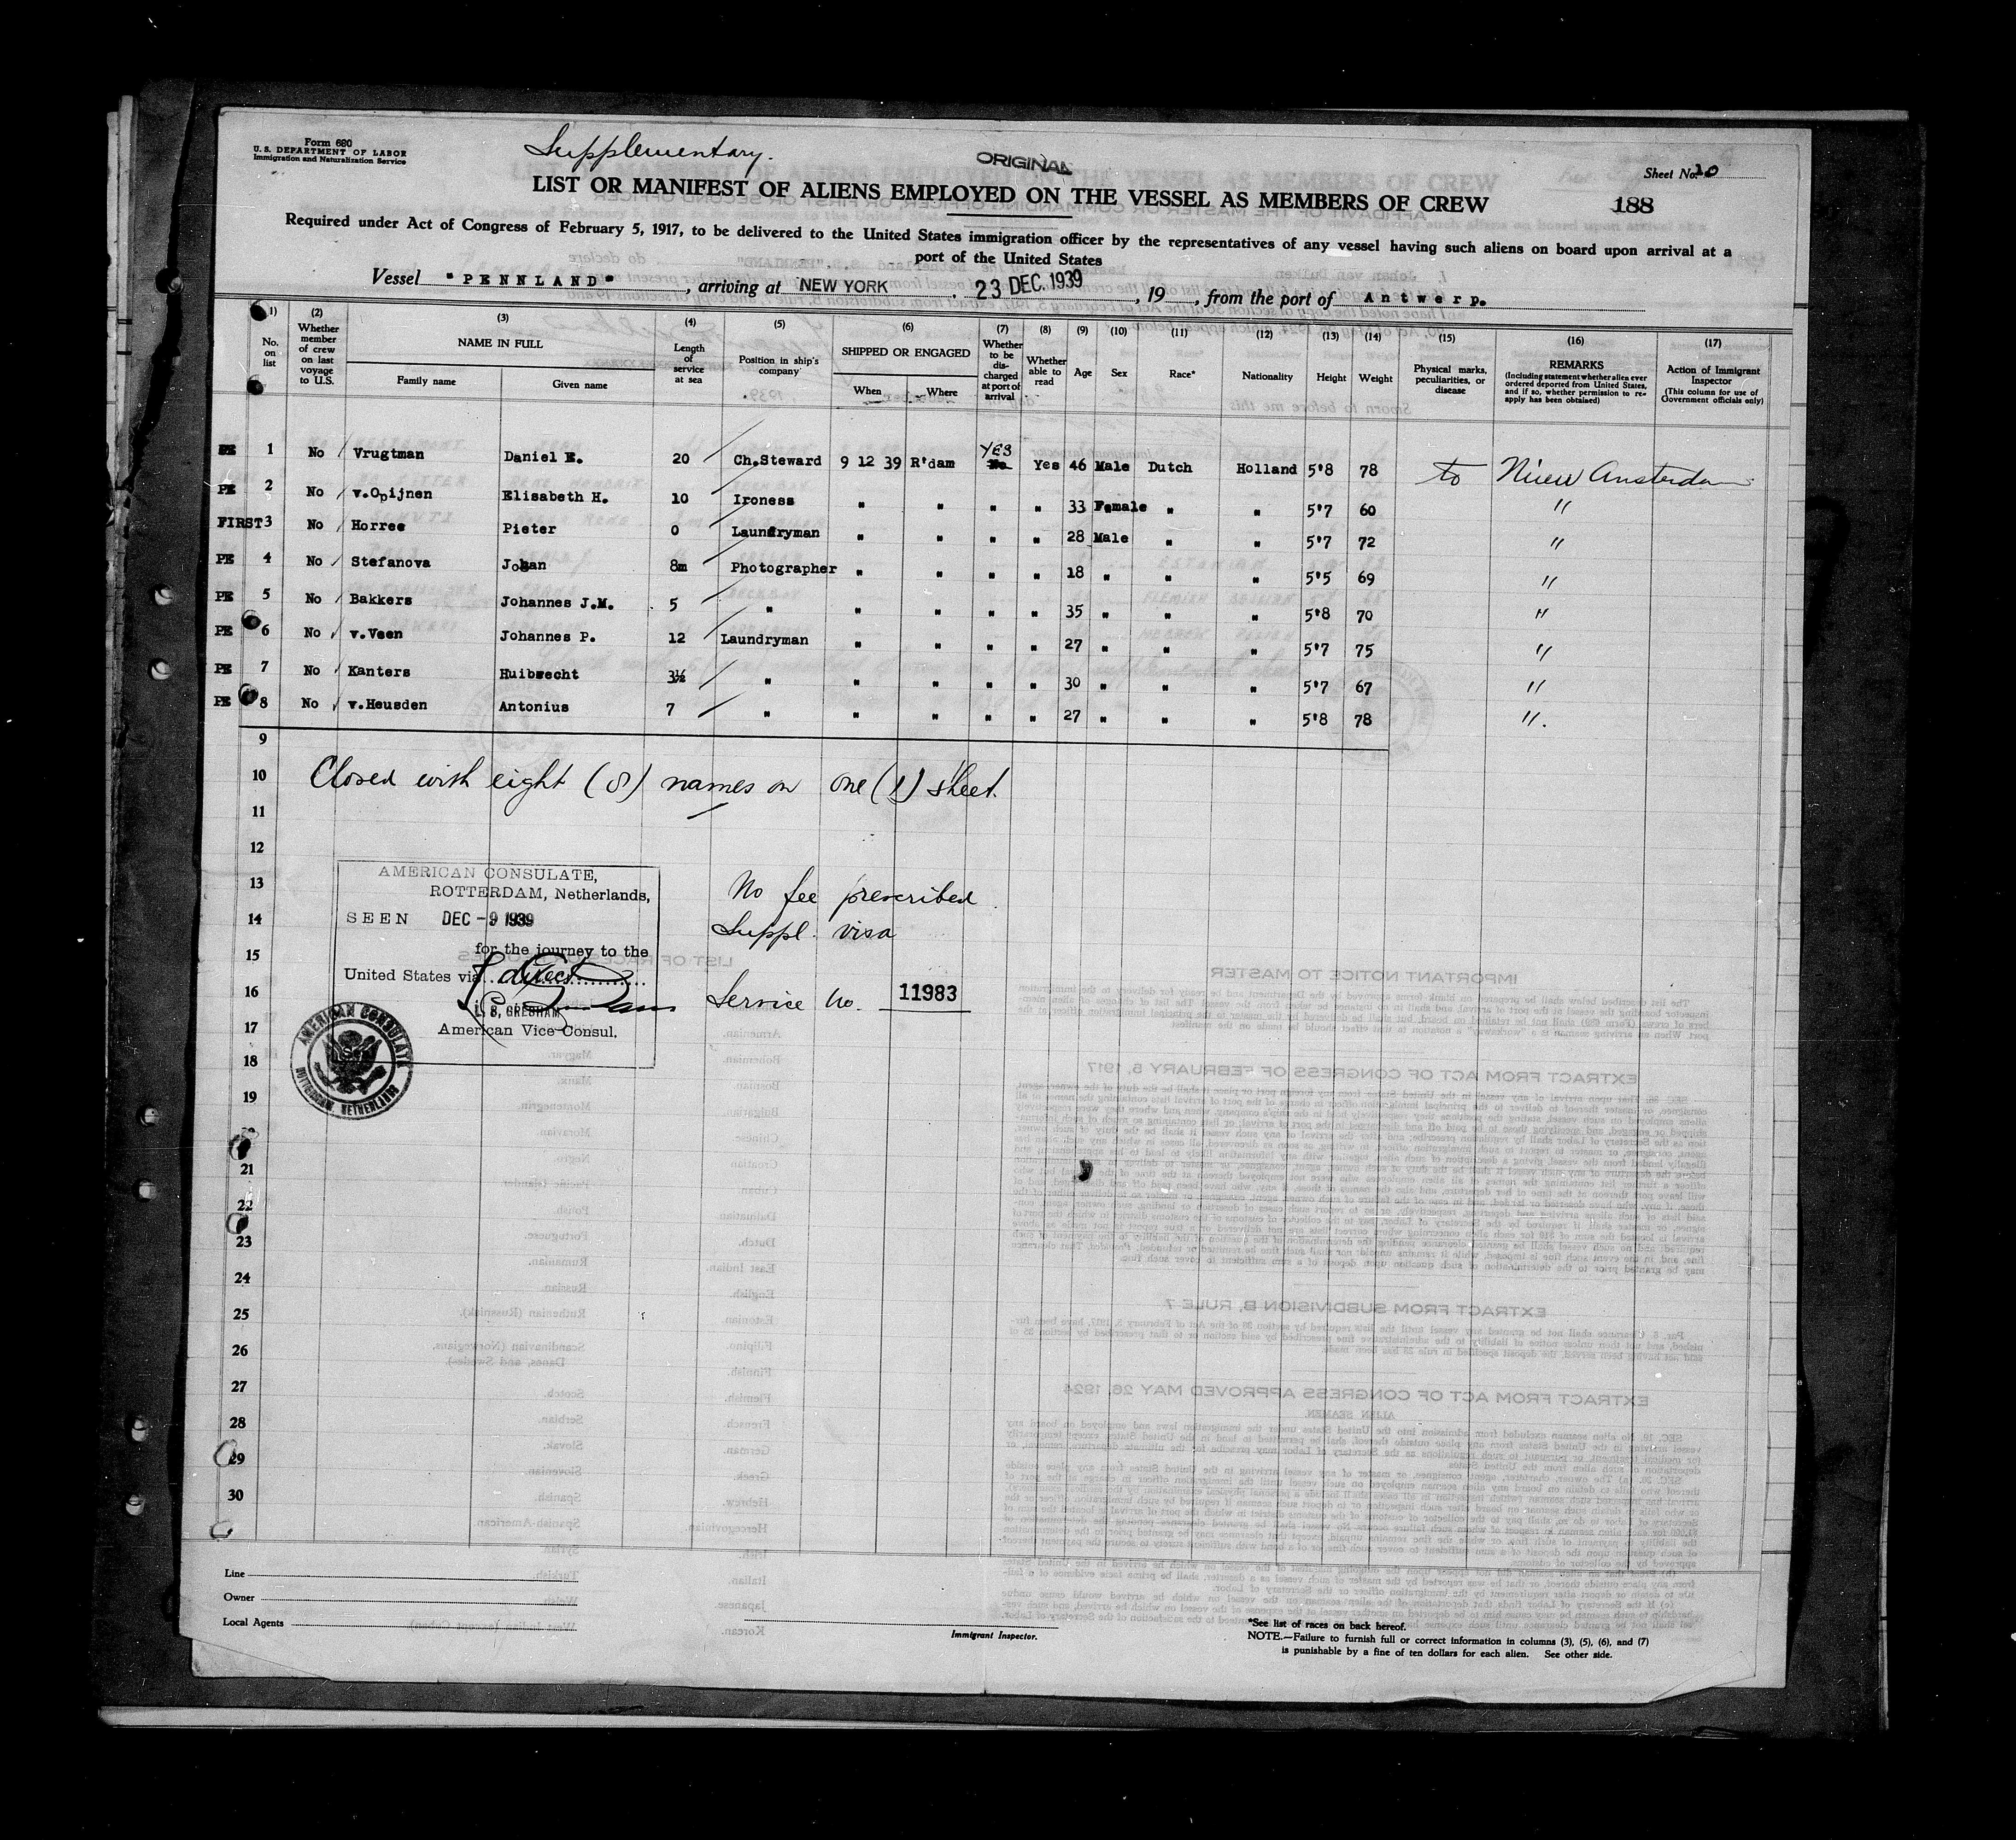 Form 680
U. S. DEPARTMENT OF LABOR
Immigration and Naturalization Service
Supplementary.
ORIGINAL
Sheet No. 20
LIST OR MANIFEST OF ALIENS EMPLOYED ON THE VESSEL AS MEMBERS OF CREW
188
Required under Act of Congress of February 5, 1917, to be delivered to the United States immigration officer by the representatives of any vessel having such aliens on board upon arrival at a
port of the United States
Vessel "PENNLAND", arriving at NEW YORK, 23 DEC. 1939, 19, from the port of Antwerp.
(1) No. on list
(2) Whether member of crew on last voyage to U.S.
(3) NAME IN FULL Family name Given name
(4) Length of service at sea
(5) Position in ship's company
(6) SHIPPED OR ENGAGED When Where
(7) Whether to be discharged at port of arrival
(8) Whether able to read
(9) Age
(10) Sex
(11) Race*
(12) Nationality
(13) Height
(14) Weight
(15) Physical marks, peculiarities, or disease
(16) REMARKS (Including statement whether alien ever ordered deported from United States, and if so, whether permission to reapply has been obtained)
(17) Action of Immigrant Inspector (This column for use of Government officials only)
PE 1 No / Vrugtman Daniel E. 20 Ch.Steward 9 12 39 R'dam YES No Yes 46 Male Dutch Holland 5'8 78 to Nieuw Amsterdam
PE 2 No / v.Opijnen Elisabeth H. 10 Ironess " " " " 33 Female " " 5'7 60 "
FIRST 3 No / Horree Pieter 0 Laundryman " " " " 28 Male " " 5'7 72 "
PE 4 No / Stefanova Johan 8m Photographer " " " " 18 " " " 5'5 69 "
PE 5 No / Bakkers Johannes J.M. 5 " " " " " 35 " " " 5'8 70 "
PE 6 No / v.Veen Johannes P. 12 Laundryman " " " " 27 " " " 5'7 75 "
PE 7 No / Kanters Huibrecht 3½ " " " " " 30 " " " 5'7 67 "
PE 8 No / v.Heusden Antonius 7 " " " " " 27 " " " 5'8 78 ".
9
10 Closed with eight (8) names on one (1) sheet.
11
12
AMERICAN CONSULATE,
ROTTERDAM, Netherlands,
SEEN DEC -9 1939
for the journey to the
United States via direct
L. S. GRESHAM
American Vice Consul.
AMERICAN CONSULATE
ROTTERDAM, NETHERLANDS
13 No fee prescribed
14 Suppl. visa
15
16 Service No. 11983
17
18
19
21
22
23
24
25
26
27
28
29
30
Line
Owner
Local Agents
Immigrant Inspector.
*See list of races on back hereof.
NOTE.—Failure to furnish full or correct information in columns (3), (5), (6), and (7)
is punishable by a fine of ten dollars for each alien. See other side.